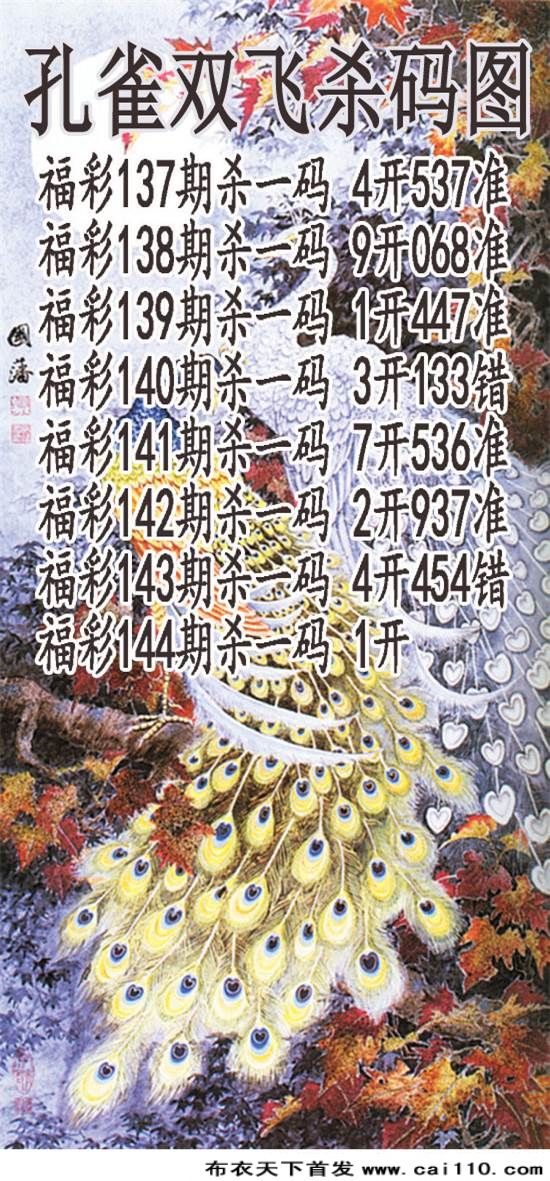 孔雀双飞杀码图
福彩137期杀一码 4开537准
福彩138期杀一码 9开068准
福彩139期杀一码 1开447准
福彩140期杀一码 3开133错
福彩141期杀一码 7开536准
福彩142期杀一码 2开937准
福彩143期杀一码 4开454错
福彩144期杀一码 1开
國藩
布衣天下首发 www.cai110.com